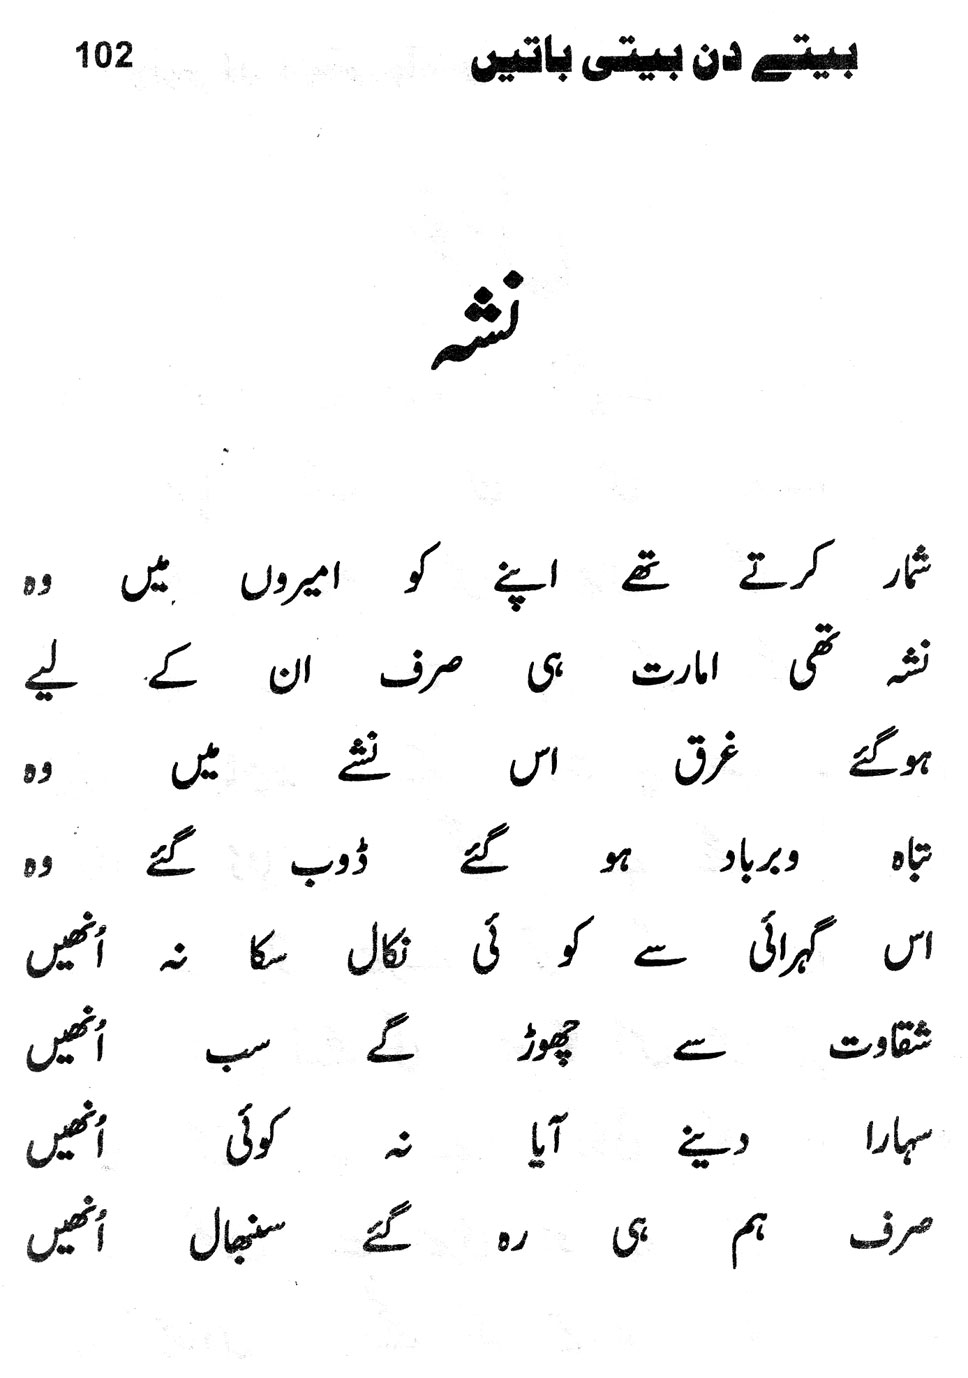 بیتے دن بیتی باتیں 102
نشہ
شمار کرتے تھے اپنے کو امیروں میں وہ
نشہ تھی امارت ہی صرف ان کے لیے
ہوگئے غرق اس نشے میں وہ
تباہ وبرباد ہو گئے ڈوب گئے وہ
اس گہرائی سے کو ئی نکال سکا نہ اُنھیں
شقاوت سے چھوڑ گے سب اُنھیں
سہارا دینے آیا نہ کوئی اُنھیں
صرف ہم ہی رہ گئے سنبھال اُنھیں